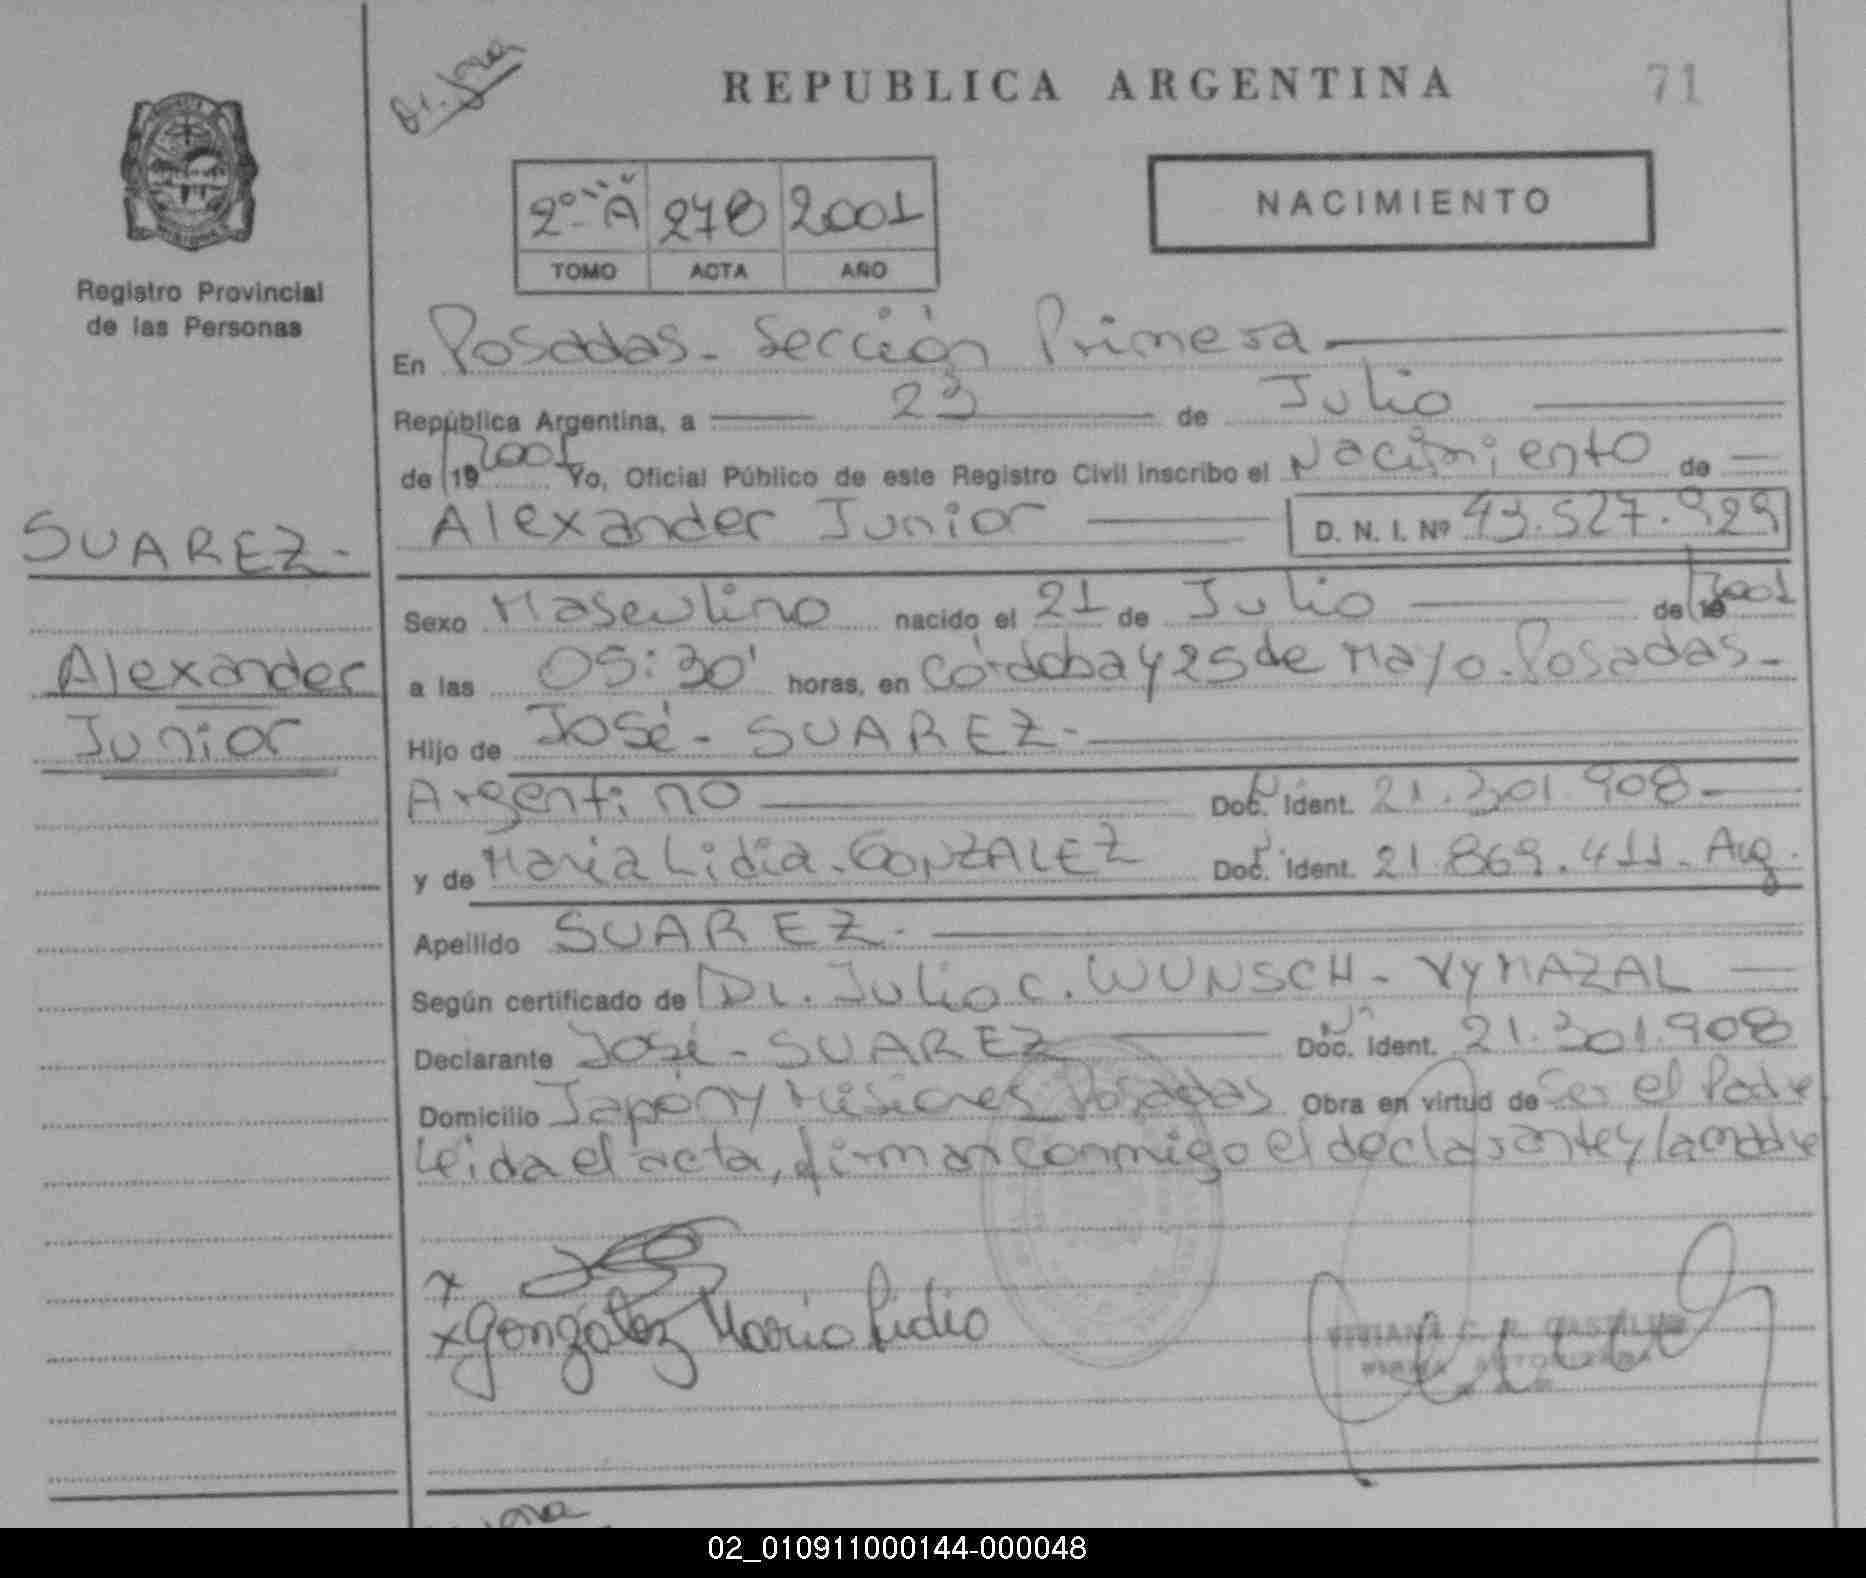 REPUBLICA ARGENTINA
71
2º "A" 278 2001
TOMO ACTA AÑO
NACIMIENTO
Registro Provincial
de las Personas
En Posadas - Sección Primera
República Argentina, a 23 de Julio
de 19 2001 Yo, Oficial Público de este Registro Civil inscribo el Nacimiento de
Alexander Junior D. N. I. Nº 43.527.929
SUAREZ -
Alexander
Junior
Sexo Masculino nacido el 21 de Julio de 19 2001
a las 05:30' horas, en Córdoba y 25 de Mayo - Posadas -
Hijo de José - SUAREZ -
Argentino Doc. Ident. 21.301.908 -
y de María Lidia - GONZALEZ Doc. Ident. 21.869.411 - Arg.
Apellido SUAREZ -
Según certificado de Dr. Julio C. WUNSCH - VYMAZAL
Declarante José - SUAREZ Doc. Ident. 21.301.908
Domicilio Japón y Misiones Posadas Obra en virtud de Ser el Padre
Leida el acta, firman conmigo el declarante y la madre
x
x González Maria Lidia
VIVIANA C. R.
FIRMA AUTORIZADA
02_010911000144-000048